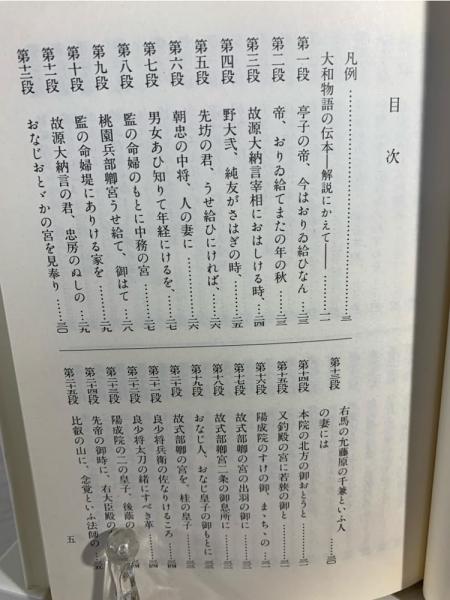 目次
凡例……三
大和物語の伝本―解説にかえて―……一一
第一段 亭子の帝、今はおりゐ給ひなん……二三
第二段 帝、おりゐ給てまたの年の秋……二三
第三段 故源大納言宰相におはしける時、……二四
第四段 野大弐、純友がさはぎの時、……二五
第五段 先坊の君、うせ給ひにければ、……二六
第六段 朝忠の中将、人の妻に……二六
第七段 男女あひ知りて年経にけるを、……二七
第八段 監の命婦のもとに中務の宮……二七
第九段 桃園兵部卿宮うせ給て、御はて……二八
第十段 監の命婦堤にありける家を……二九
第十一段 故源大納言の君、忠房のぬしの……二九
第十二段 おなじおとゞかの宮を見奉り……三〇
第十三段 右馬の允藤原の千兼といふ人
の妻には……三〇
第十四段 本院の北方の御おとうと……三一
第十五段 又釣殿の宮に若狭の御と……三一
第十六段 陽成院のすけの御、まゝちゝの……三二
第十七段 故式部卿の宮の出羽の御に……三二
第十八段 故式部卿宮二条の御息所に……三三
第十九段 おなじ人、おなじ皇子の御もとに……三三
第二十段 故式部卿の宮を、桂の皇子……三三
第二十一段 良少将兵衛の佐なりけるころ……三四
第二十二段 良少将太刀の緒にすべき革……三四
第二十三段 陽成院の二の皇子、後蔭の
第二十四段 先帝の御時に、右大臣殿の
第二十五段 比叡の山に、念覚といふ法師の
五